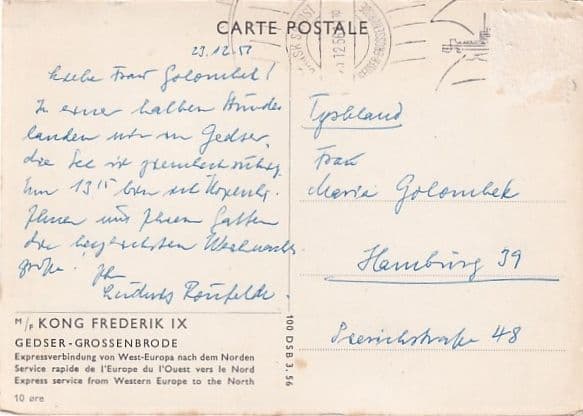 CARTE POSTALE
23.12.5
Liebe Frau Golombek!
In einer halben Stunde
landen wir in Gedser,
die See ist ziemlich ruhig.
Um 13¹⁵ bin ich
Ihnen und Ihrem Gatten
die herzlichsten Weihnachts-
grüße. Ihr
Ludwig
Tyskland
Frau
Maria Golombek
Hamburg 39
48
M/F KONG FREDERIK IX
GEDSER-GROSSENBRODE
Expressverbindung von West-Europa nach dem Norden
Service rapide de l'Europe du l'Ouest vers le Nord
Express service from Western Europe to the North
10 øre
100 DSB 3.56